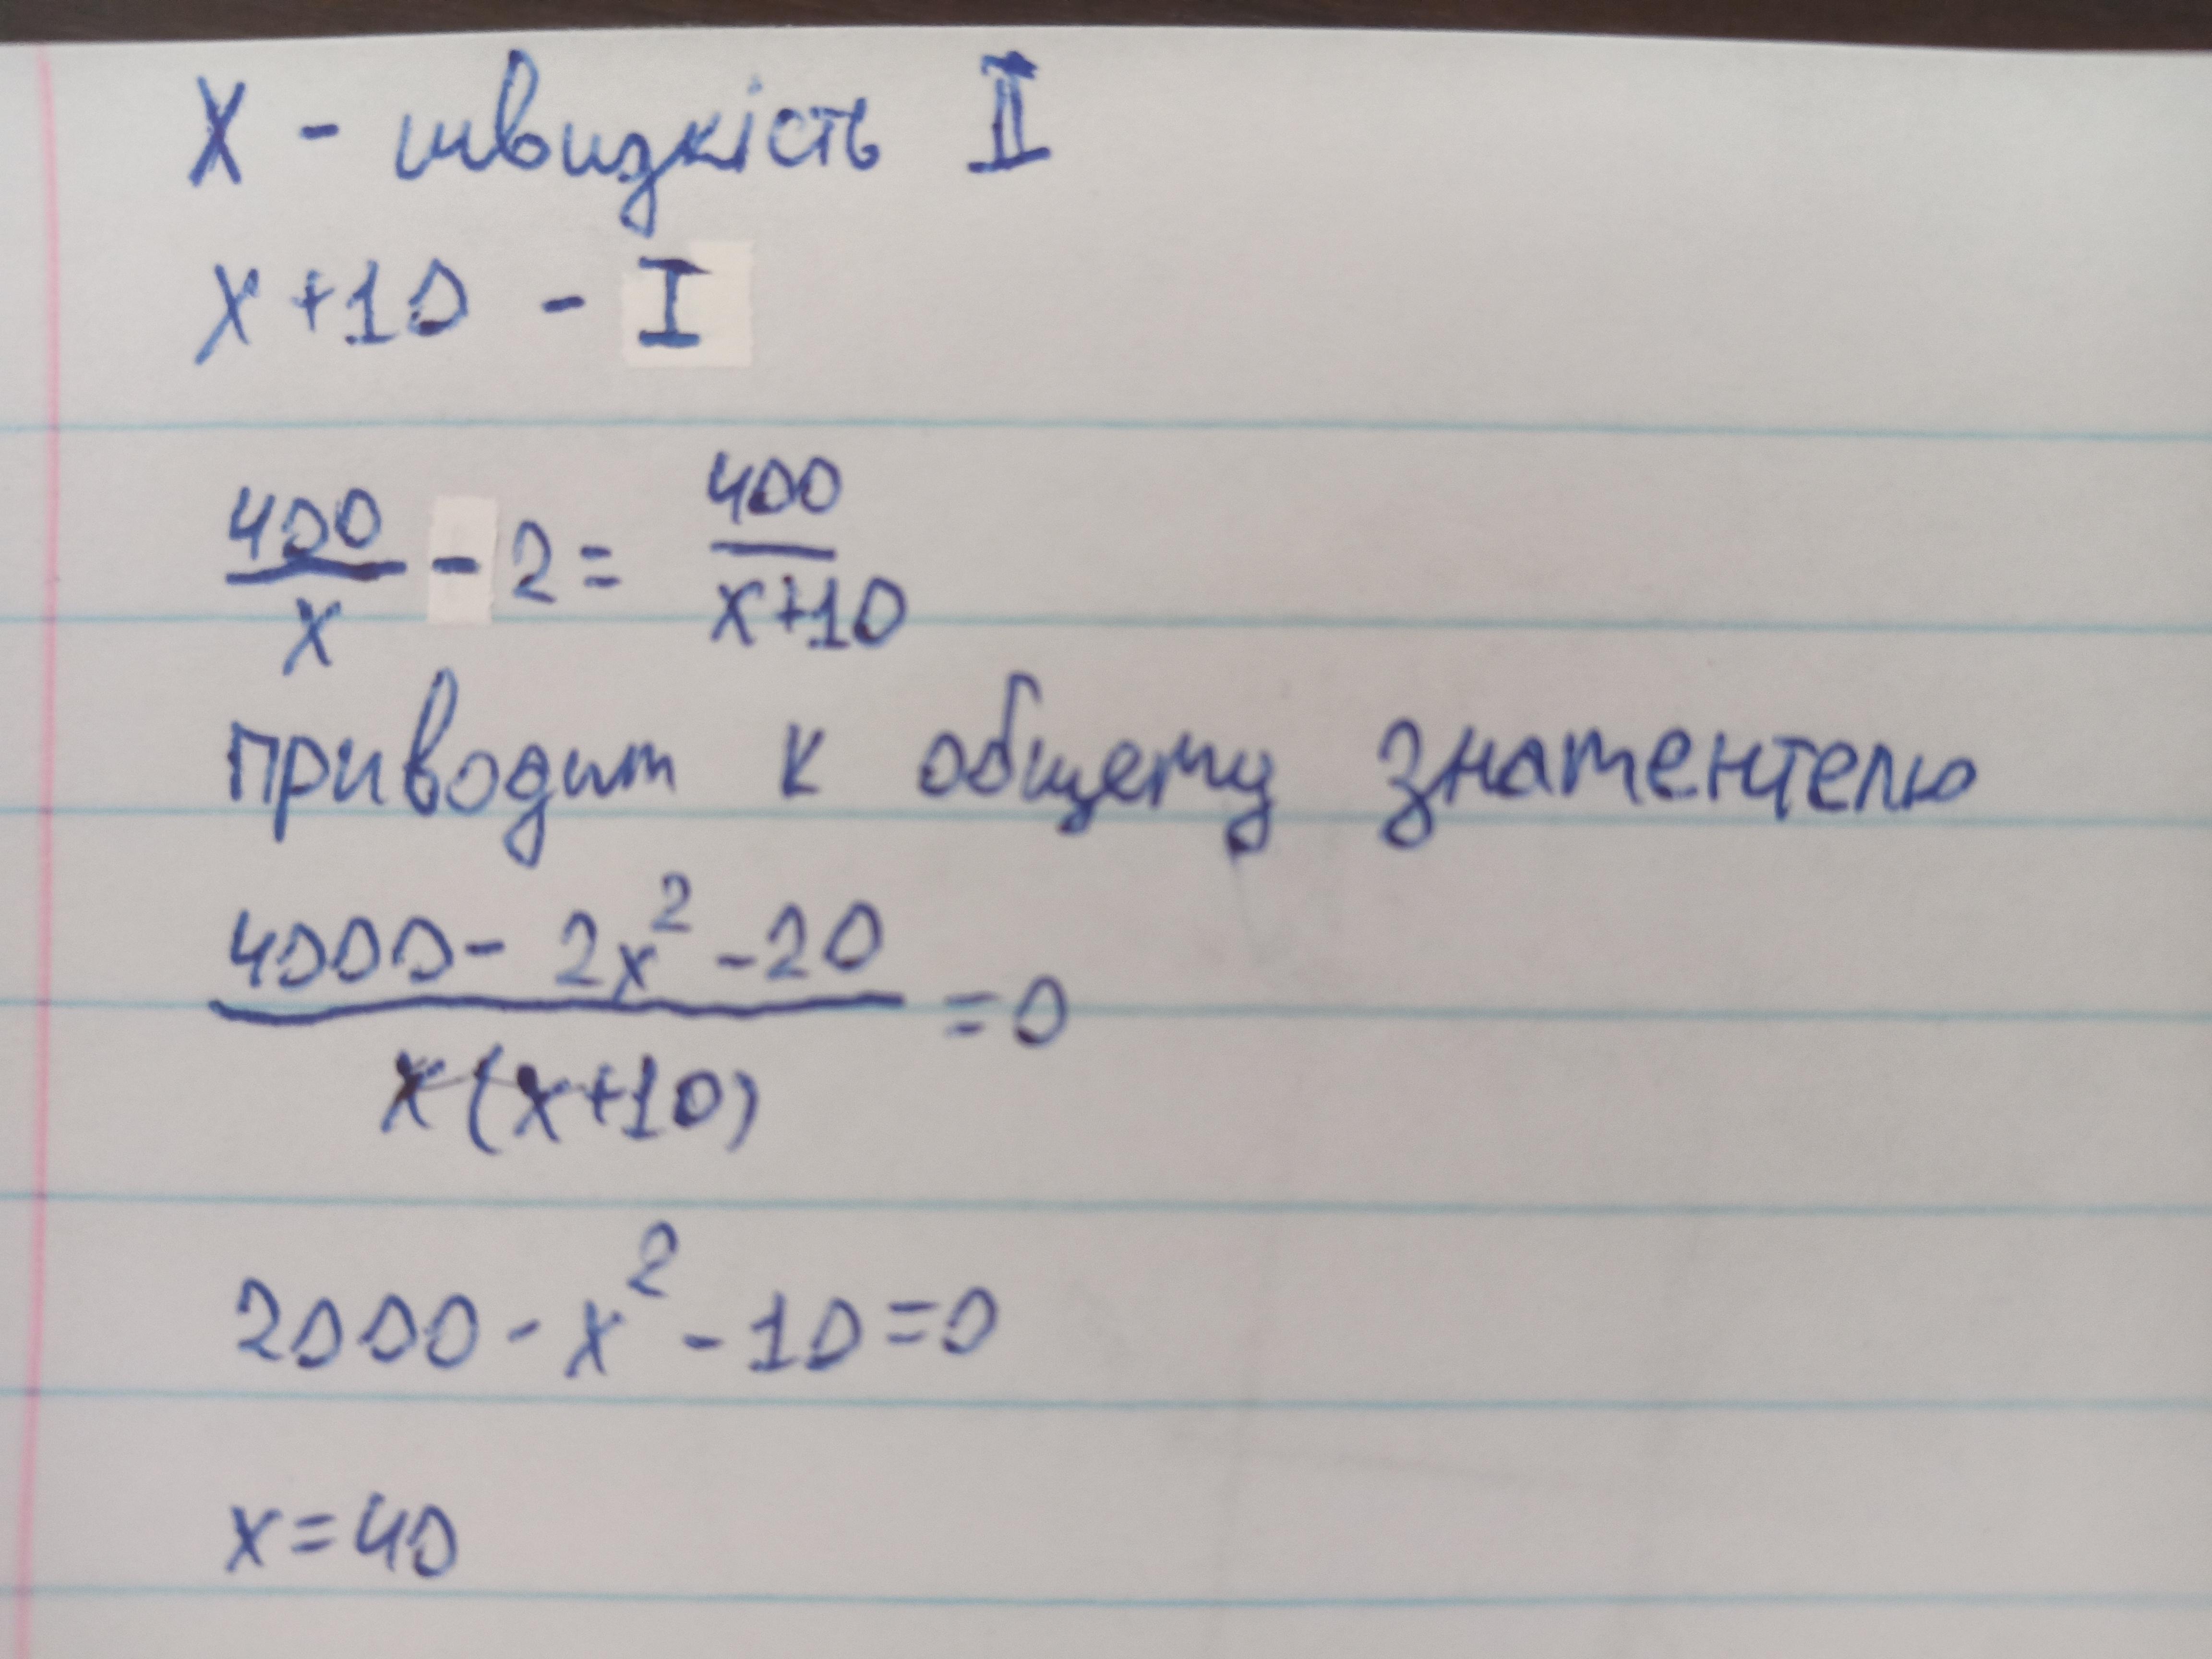 X - швидкість II
x+10 - I
400/x - 2 = 400/(x+10)
приводит к общему знаментелю
(4000 - 2x² - 20)/(x(x+10)) = 0
2000 - x² - 10 = 0
x = 40